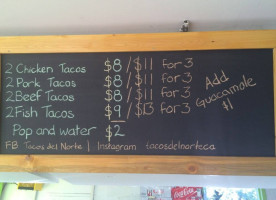 2 Chicken Tacos $8 / $11 for 3
2 Pork Tacos $8 / $11 for 3
2 Beef Tacos $8 / $11 for 3
2 Fish Tacos $9 / $13 for 3
Pop and water $2
Add
Guacamole
$1
FB Tacos del Norte | Instagram tacosdelnorteca
Coca-Cola